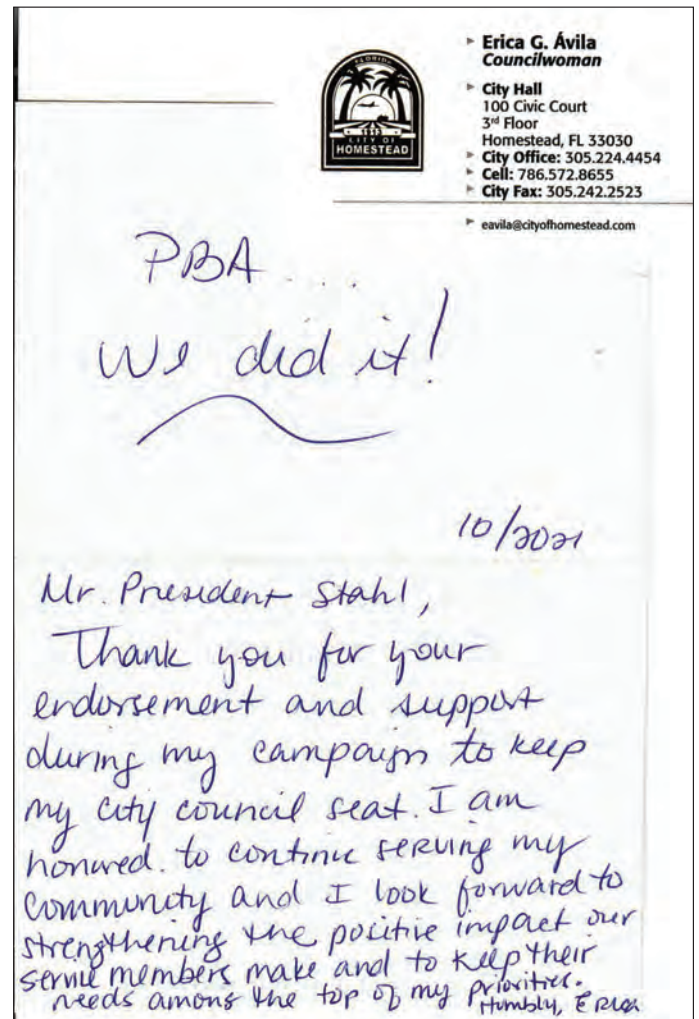 FLORIDA
CITY OF
HOMESTEAD
Erica G. Ávila
Councilwoman
City Hall
100 Civic Court
3rd Floor
Homestead, FL 33030
City Office: 305.224.4454
Cell: 786.572.8655
City Fax: 305.242.2523
eavila@cityofhomestead.com
PBA....
We did it!
10/2021
Mr. President Stahl,
Thank you for your
endorsement and support
during my campaign to keep
my city council seat. I am
honored to continue serving my
community and I look forward to
strengthening the positive impact our
service members make and to keep their
needs among the top of my priorities.
Humbly, Erica